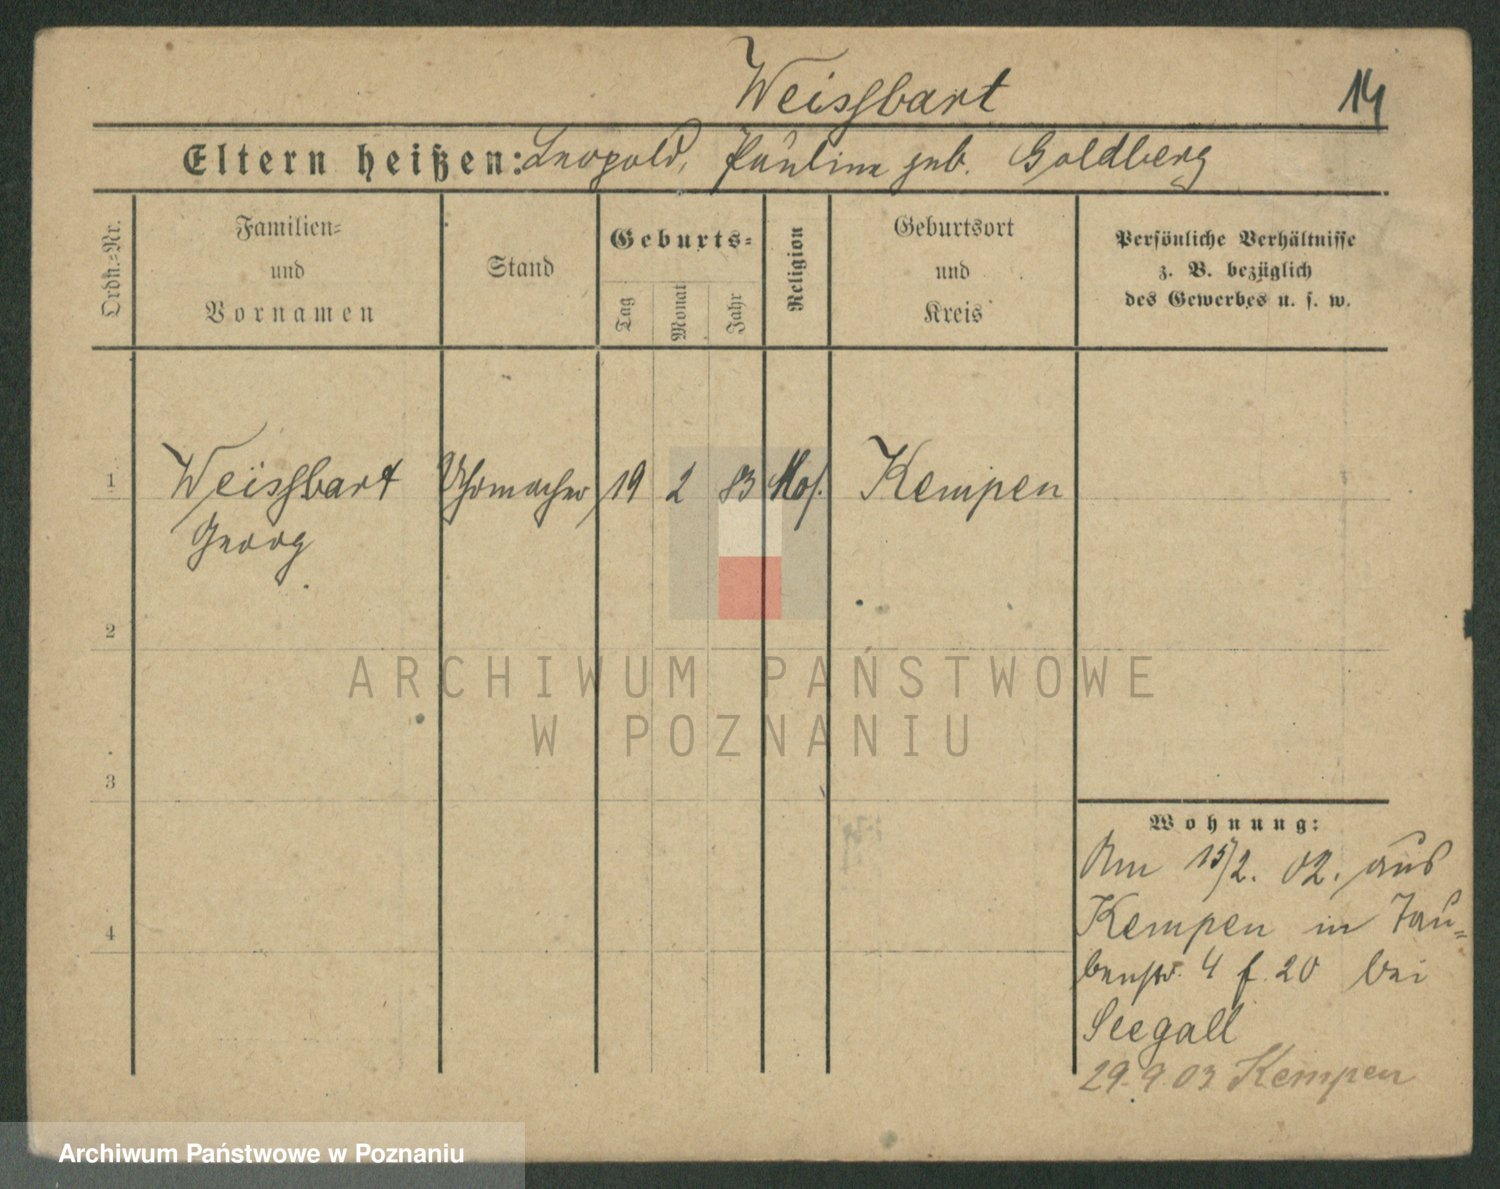 Weissbart 14
Eltern heißen: Leopold, Pauline geb. Goldberg
Ordn.-Nr.
Familien-
und
Vornamen
Stand
Geburts-
Tag
Monat
Jahr
Religion
Geburtsort
und
Kreis
Persönliche Verhältnisse
z. B. bezüglich
des Gewerbes u. s. w.
1 Weissbart Uhrmacher 19 2 83 Mos. Kempen
Georg
2
ARCHIWUM PAŃSTWOWE
W POZNANIU
3
Wohnung:
Am 15/2. 02. aus
Kempen in Tau-
benstr. 4 f. 20 bei
4
Seegall
29.9.03 Kempen
Archiwum Państwowe w Poznaniu